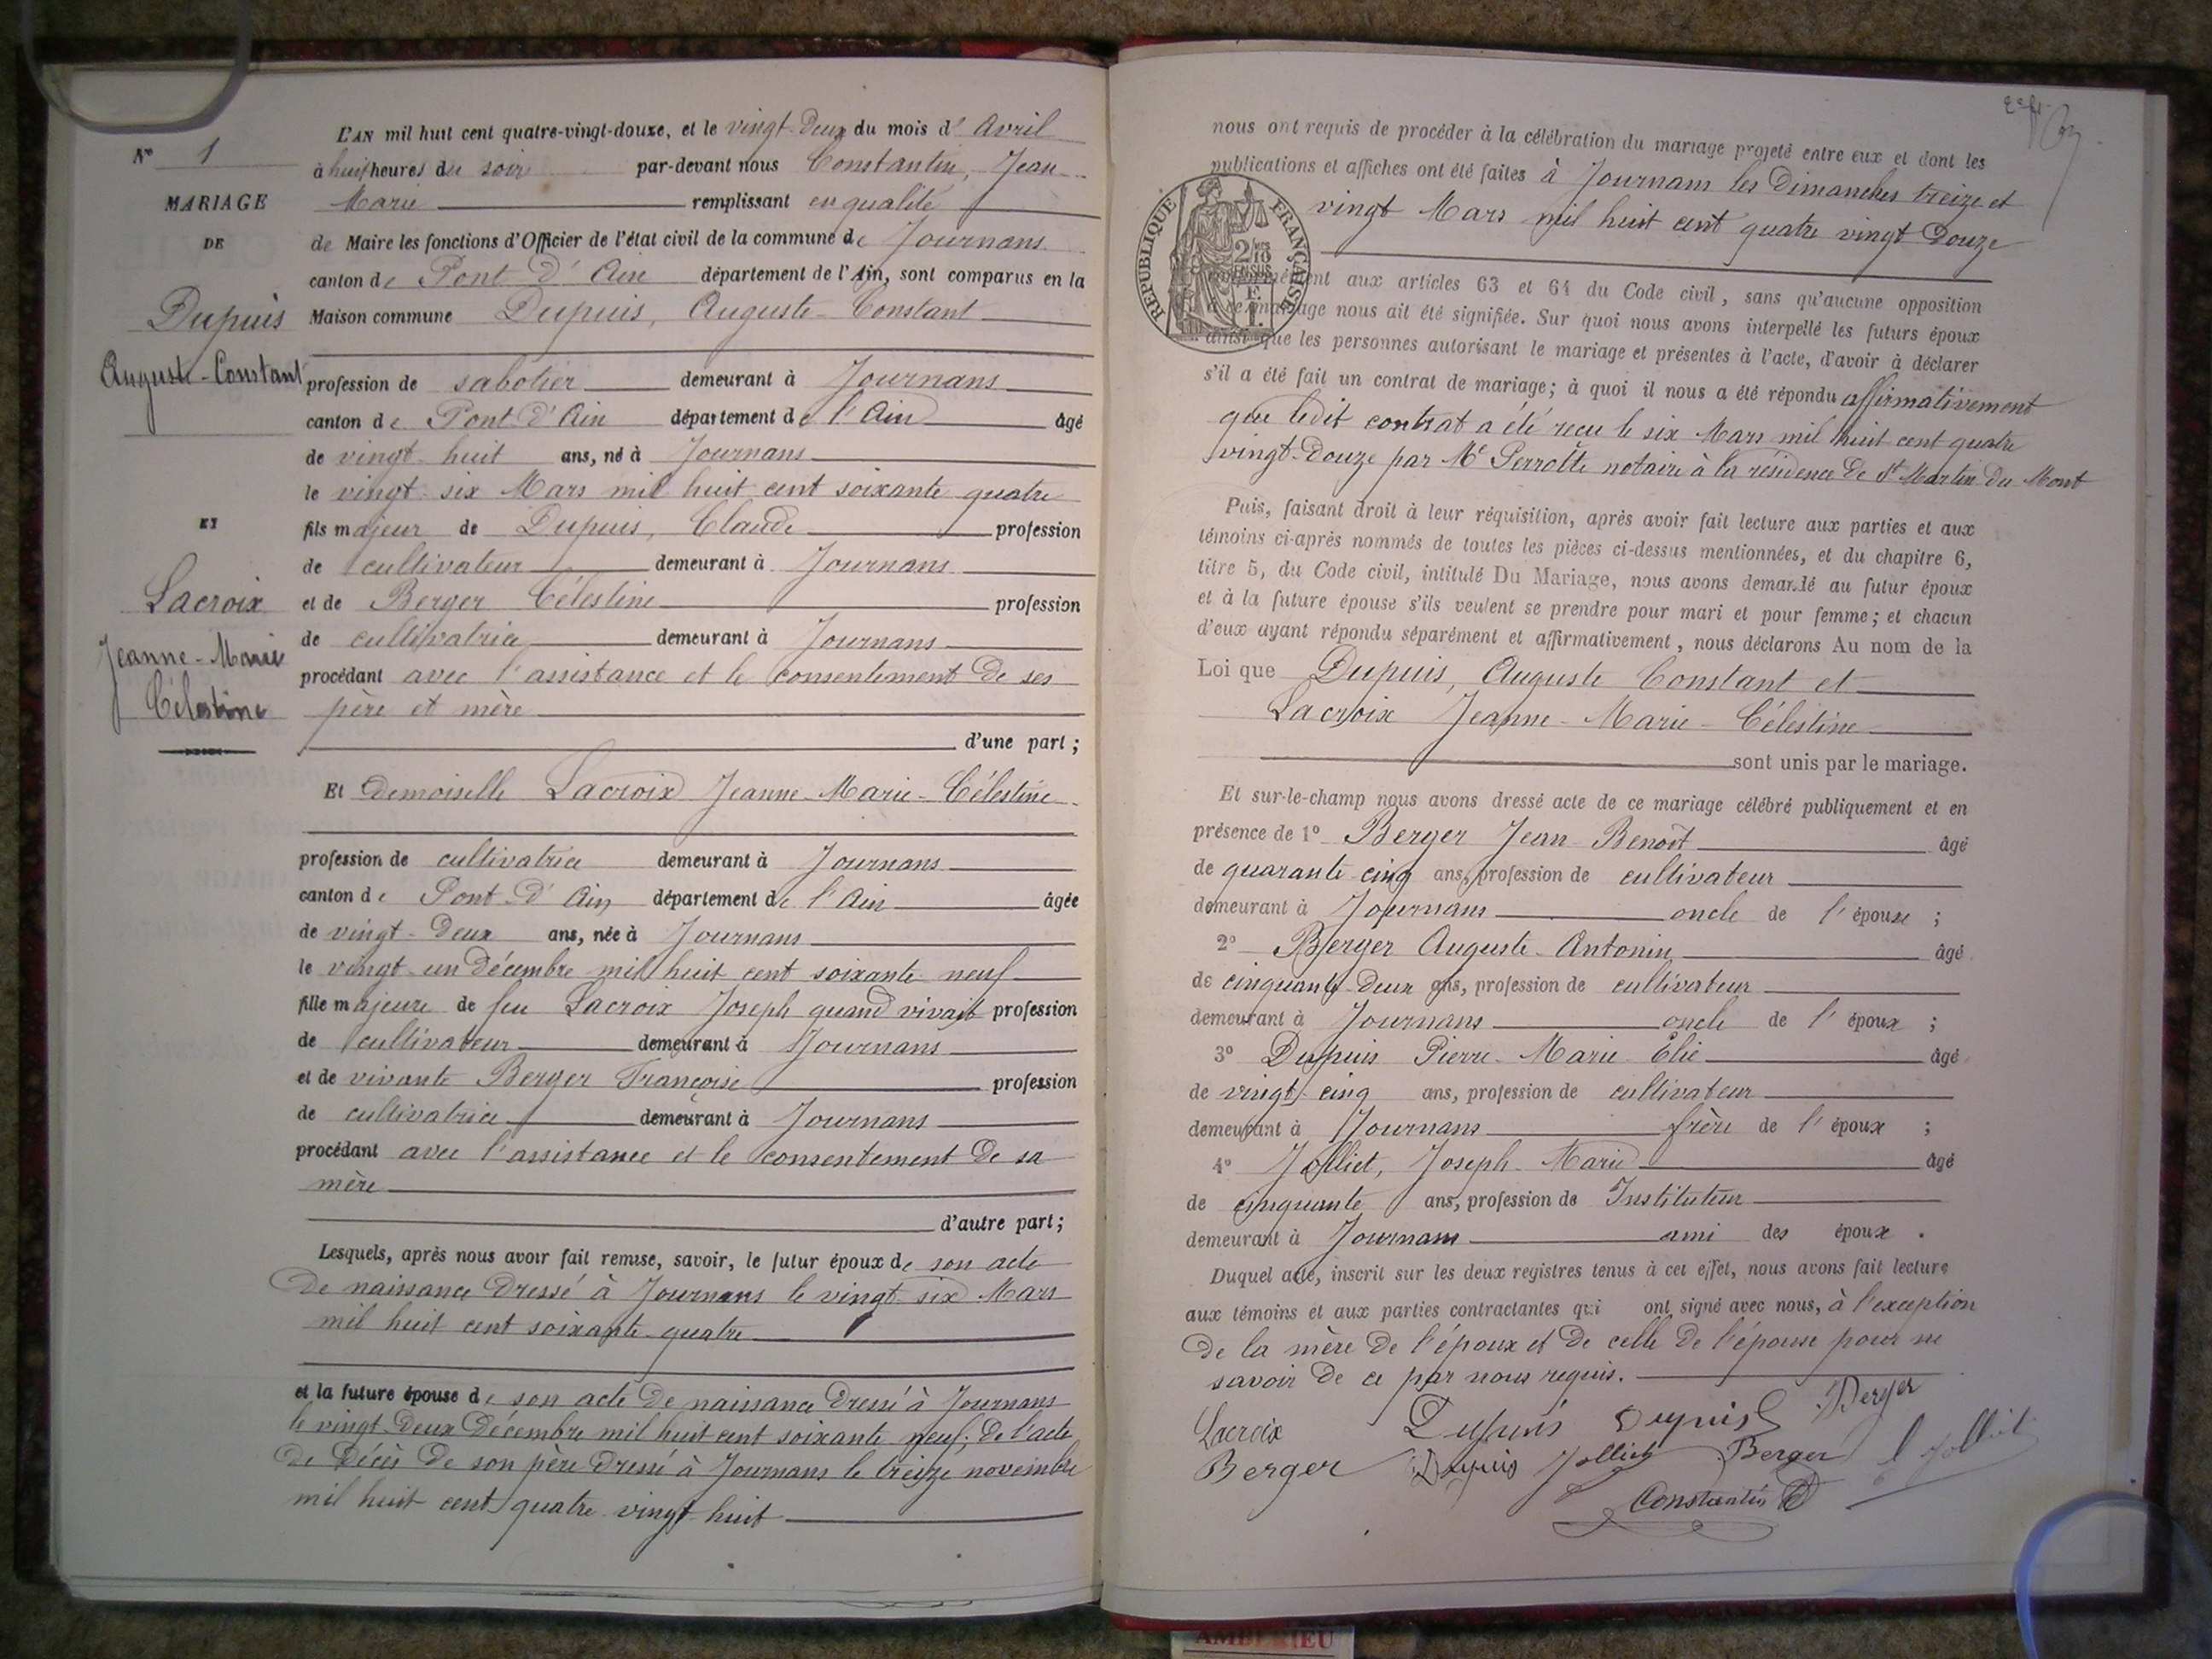 L'AN mil huit cent quatre-vingt-douze, et le vingt-Deux du mois d' Avril
N° 1
à huit heures du soir par-devant nous Constantin, Jean
MARIAGE
Marie remplissant en qualité
DE
de Maire les fonctions d'Officier de l'état civil de la commune de Journans
canton de Pont D'Ain département de l'Ain, sont comparus en la
Dupuis
Maison commune Dupuis, Auguste-Constant
Auguste-Constant
profession de sabotier demeurant à Journans
canton de Pont D'Ain département de l'Ain âgé
de vingt-huit ans, né à Journans
le vingt-six Mars mil huit cent soixante quatre
ET
fils majeur de Dupuis, Claude profession
de cultivateur demeurant à Journans
Lacroix
et de Berger Célestine profession
de cultivatrice demeurant à Journans
Jeanne-Marie
procédant avec l'assistance et le consentement de ses
Célestine
père et mère
d'une part ;
Et Demoiselle Lacroix Jeanne-Marie-Célestine
profession de cultivatrice demeurant à Journans
canton de Pont D'Ain département de l'Ain âgée
de vingt-Deux ans, née à Journans
le vingt-un Décembre mil huit cent soixante neuf
fille majeure de feu Lacroix Joseph quand vivait profession
de cultivateur demeurant à Journans
et de vivante Berger Françoise profession
de cultivatrice demeurant à Journans
procédant avec l'assistance et le consentement De sa
mère
d'autre part ;
Lesquels, après nous avoir fait remise, savoir, le futur époux de son acte
De naissance Dressé à Journans le vingt-six Mars
mil huit cent soixante-quatre
et la future épouse de son acte De naissance Dressé à Journans
le vingt-Deux Décembre mil huit cent soixante neuf; De l'acte
De Décès De son père Dressé à Journans le treize novembre
mil huit cent quatre-vingt-huit
nous ont requis de procéder à la célébration du mariage projeté entre eux et dont les
publications et affiches ont été faites à Journans les Dimanches treize et
vingt Mars mil huit cent quatre vingt-Douze
REPUBLIQUE FRANÇAISE
2/10 EN SUS
conformément aux articles 63 et 64 du Code civil, sans qu'aucune opposition
à ce mariage nous ait été signifiée. Sur quoi nous avons interpellé les futurs époux
ainsi que les personnes autorisant le mariage et présentes à l'acte, d'avoir à déclarer
s'il a été fait un contrat de mariage; à quoi il nous a été répondu affirmativement
que ledit contrat a été reçu le six Mars mil huit cent quatre
vingt-Douze par Me Perrotte notaire à la résidence De St Martin Du Mont
Puis, faisant droit à leur réquisition, après avoir fait lecture aux parties et aux
témoins ci-après nommés de toutes les pièces ci-dessus mentionnées, et du chapitre 6,
titre 5, du Code civil, intitulé Du Mariage, nous avons demandé au futur époux
et à la future épouse s'ils veulent se prendre pour mari et pour femme; et chacun
d'eux ayant répondu séparément et affirmativement, nous déclarons Au nom de la
Loi que Dupuis, Auguste Constant et
Lacroix Jeanne-Marie-Célestine
sont unis par le mariage.
Et sur-le-champ nous avons dressé acte de ce mariage célébré publiquement et en
présence de 1° Berger Jean-Benoît âgé
de quarante-cinq ans, profession de cultivateur
demeurant à Journans oncle de l'épouse ;
2° Berger Auguste-Antonin âgé
de cinquante-Deux ans, profession de cultivateur
demeurant à Journans oncle de l'époux ;
3° Dupuis Pierre-Marie-Elie âgé
de vingt-cinq ans, profession de cultivateur
demeurant à Journans frère de l'époux ;
4° Jolliet, Joseph-Marie âgé
de cinquante ans, profession de Instituteur
demeurant à Journans ami des époux .
Duquel acte, inscrit sur les deux registres tenus à cet effet, nous avons fait lecture
aux témoins et aux parties contractantes qui ont signé avec nous, à l'exception
De la mère De l'époux et De celle De l'épouse pour ne
savoir De ce par nous requis.
Lacroix Dupuis Dupuis Berger
Berger Dupuis Jolliet Berger Jolliet
Constantin